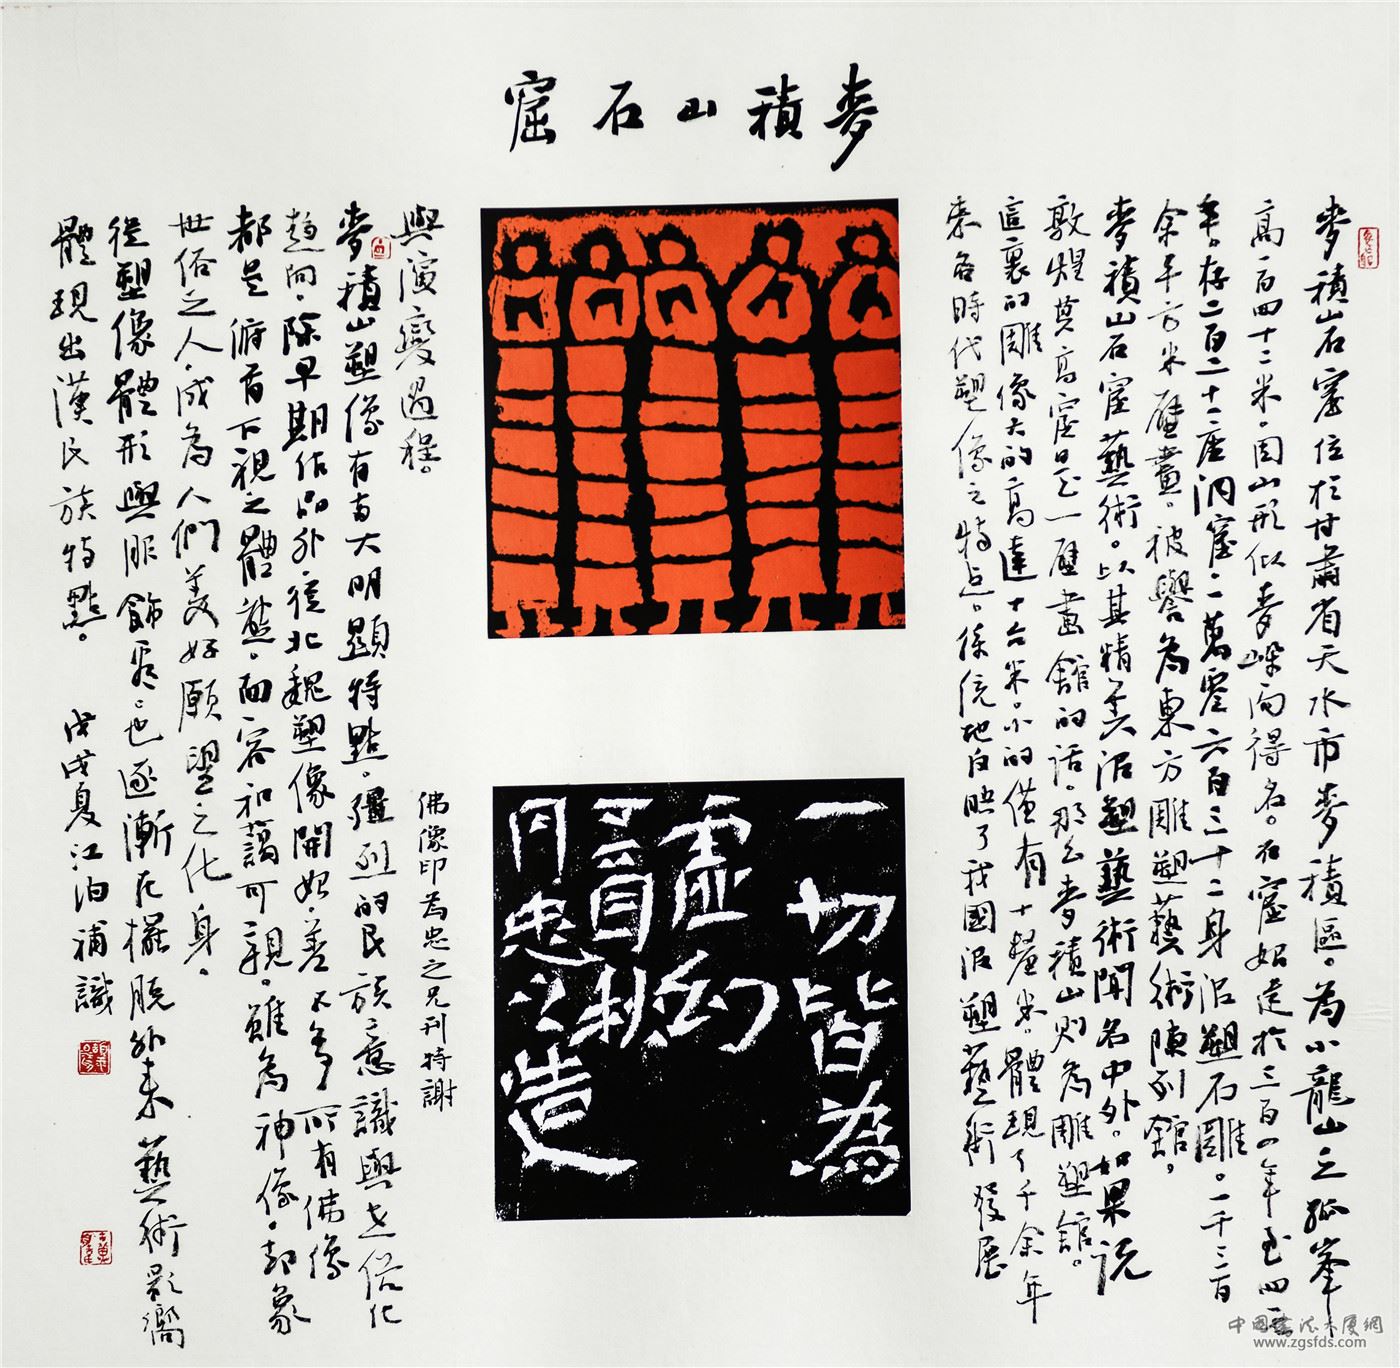 麥積山石窟
麥積山石窟位於甘肅省天水市麥積區。為小龍山之孤峯
高一百四十二米。因山形似麥垛而得名。石窟始建於三百八四年至四一
年。存二百二十二座洞窟。一萬零六百三十二身泥塑石雕。一千三百
余平方米壁畫。被譽為東方雕塑藝術陳列舘。
麥積山石窟藝術。以其精美泥塑藝術聞名中外。如果說
敦煌莫高窟是一座壁畫舘的話。那么麥積山則為雕塑舘。
這裏的雕像大的高達十六米。小的僅有十釐米。體現了千余年
來各時代塑像之特点。係統地反映了我國泥塑藝術發展
與演變過程。
麥積山塑像有大明顯特點。強烈的民族意識與世俗化
趨向。除早期作品外。從北魏塑像開始。差不多所有佛像
都是俯首下視之體態。面容和藹可親。雖為神像。却象
世俗之人。成為人們美好願望之化身。
從塑像體形與服飾看。也逐漸在擺脫外來藝術影嚮
體現出漢民族特點。 戊戌夏江泊補識
佛像印為忠之兄刊特謝
一切皆為
虛幻
丹忠之造
中國書法大廈網
www.zgsfds.com